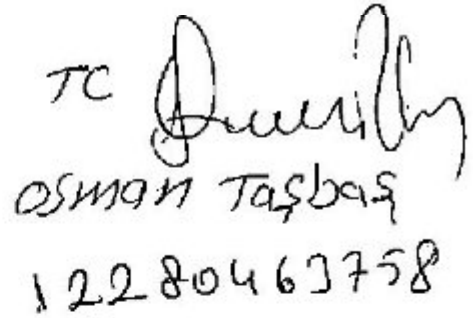 TC
Osman Taşbaş
12280463758